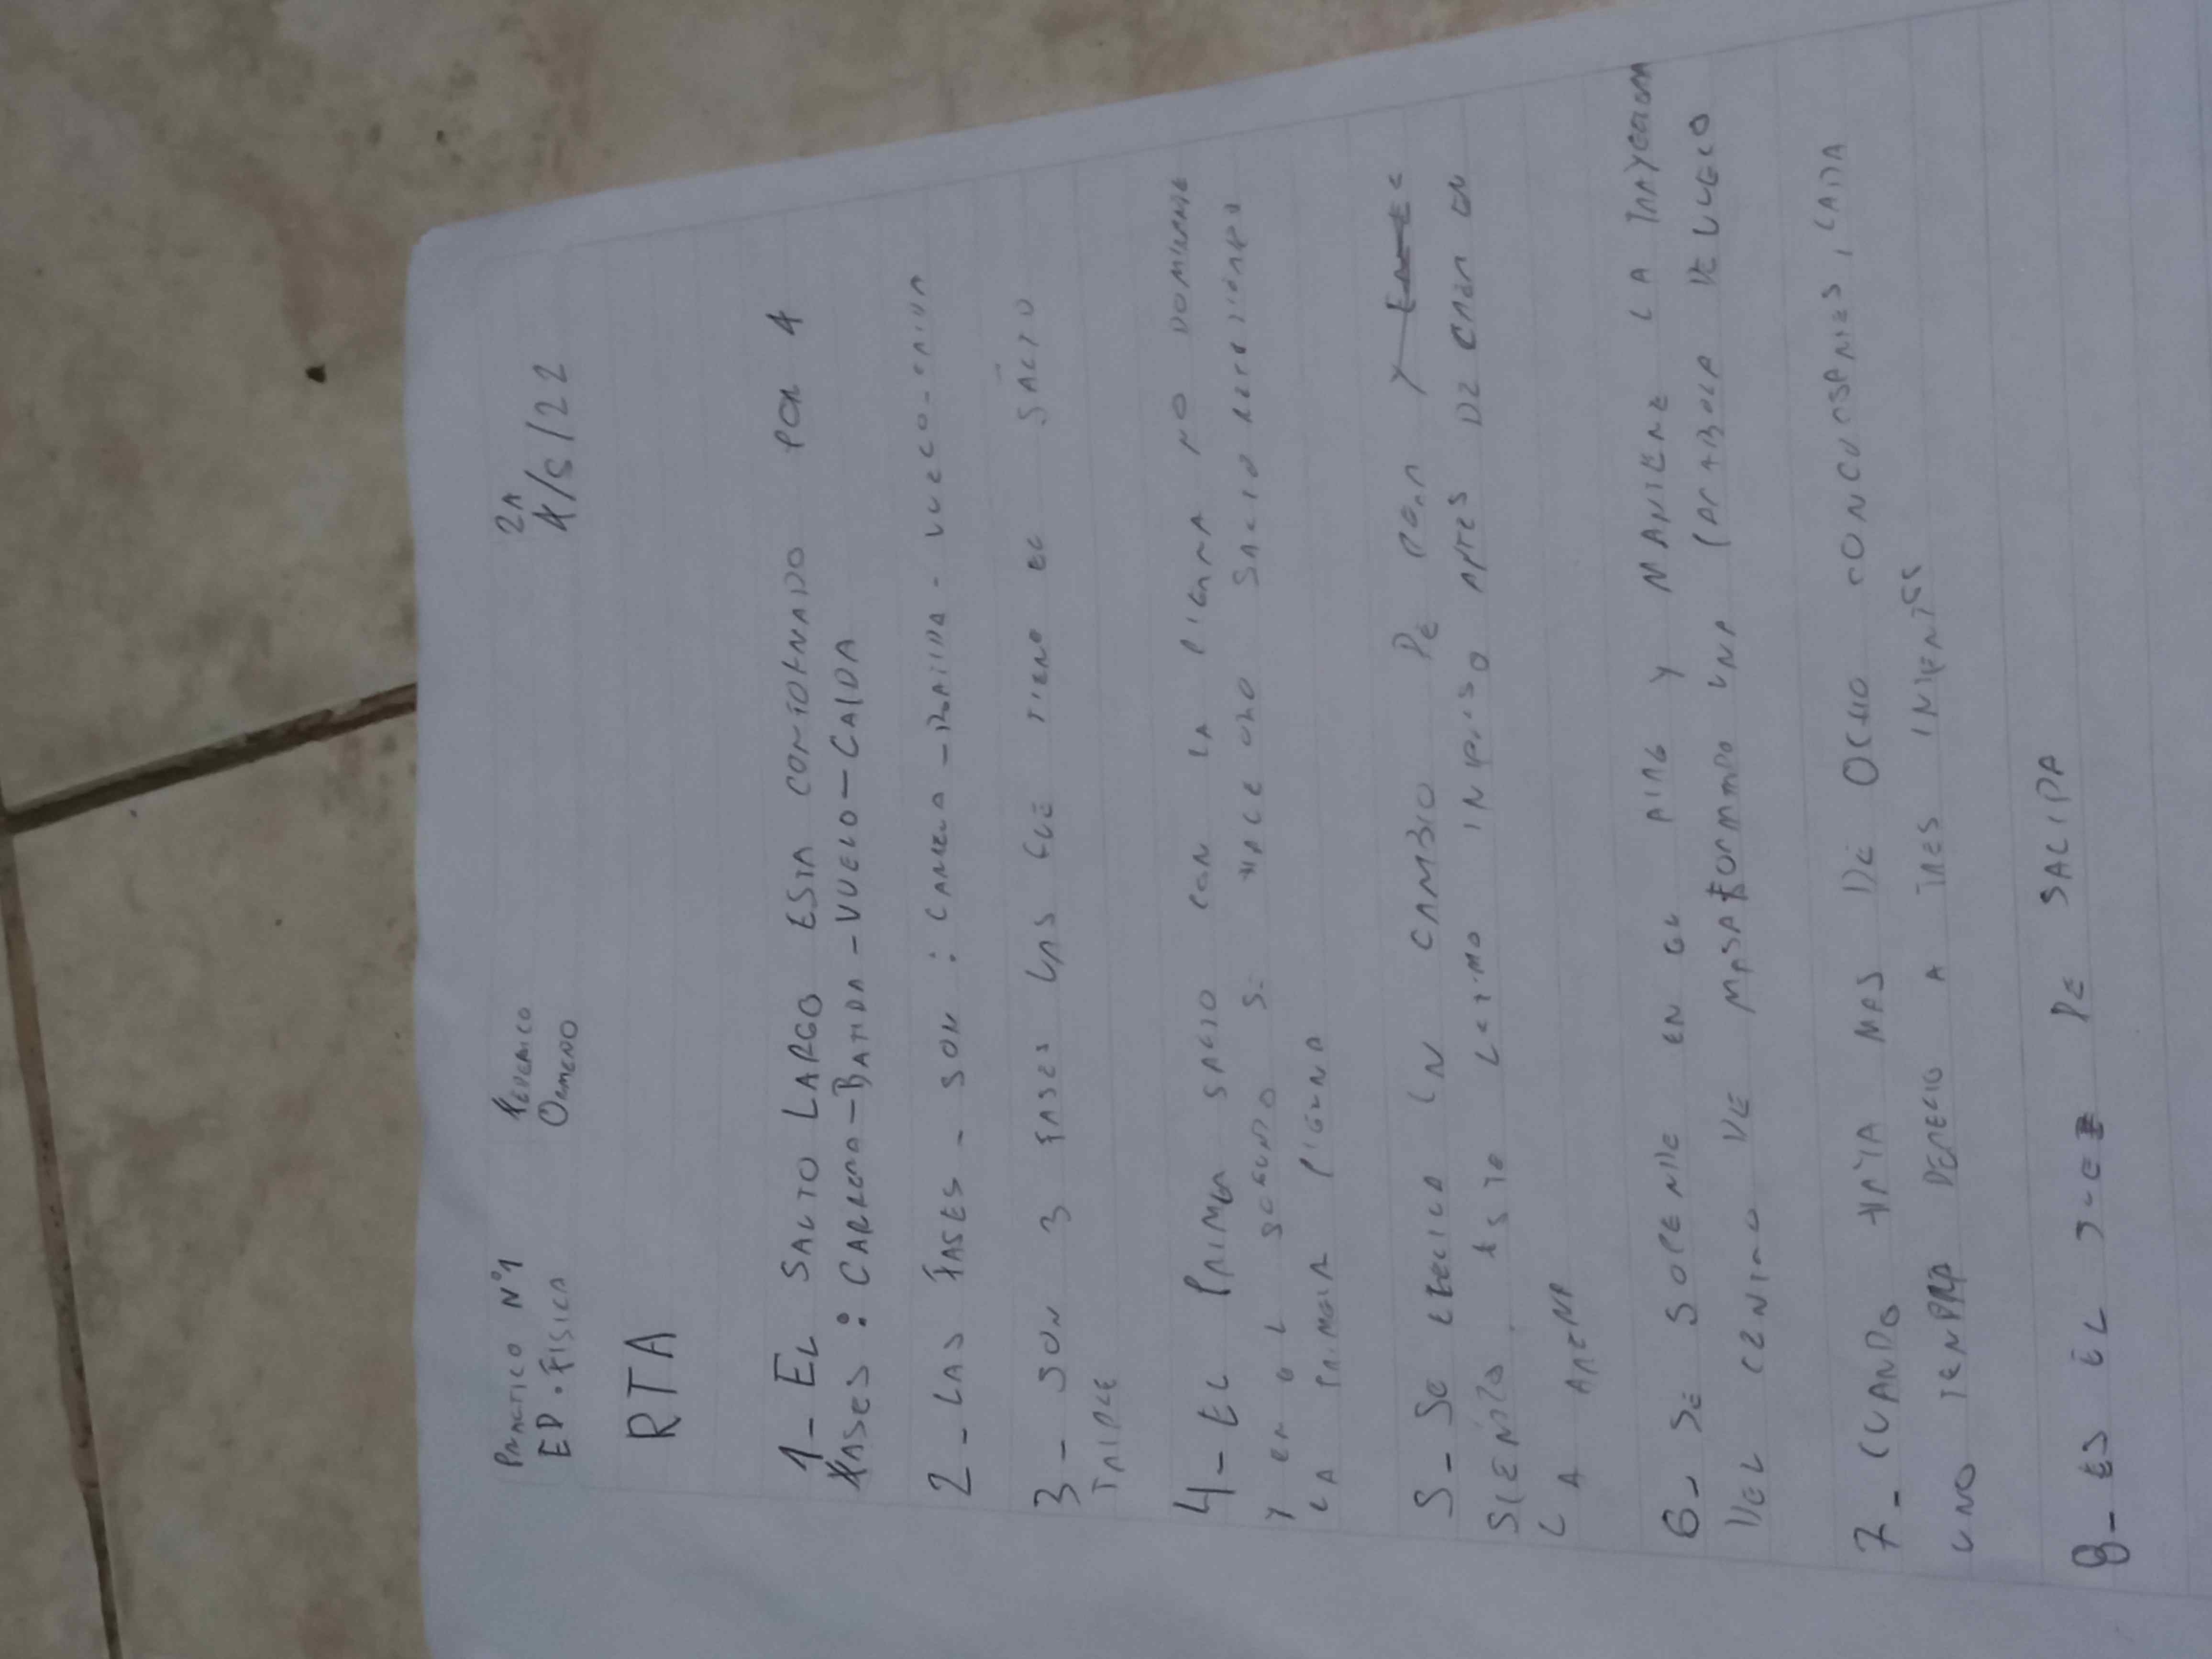 PRACTICO N°1
ED. FISICA
FEDERICO
2A
4/5/22
RTA
1- EL SALTO LARGO ESTA CONFORMADO POR 4
FASES: CARRERA-BATIDA-VUELO-CAIDA
2- LAS FASES - SON: CARRERA - BATIDA - VUELO - CAIDA
3- SON 3 FASES LAS QUE TIENE EL SALTO
TRIPLE
4- EL PRIMER SALTO CON LA PIERNA NO DOMINANTE
Y EN EL SEGUNDO SE HACE OTRO SALTO
LA PRIMERA PIERNA
5- SE CAMBIO DE Y
ESTO ULTIMO IMPULSO ANTES DE CAER EN
LA ARENA
6- SE EN EL AIRE Y MANTIENE LA
DEL CENTRO DE MASA FORMANDO UNA PARABOLA DE VUELO
7- CUANDO HAYA MAS DE OCHO CADA
UNO TENDRA DERECHO A TRES INTENTOS
8- ES EL JUEZ DE SALIDA